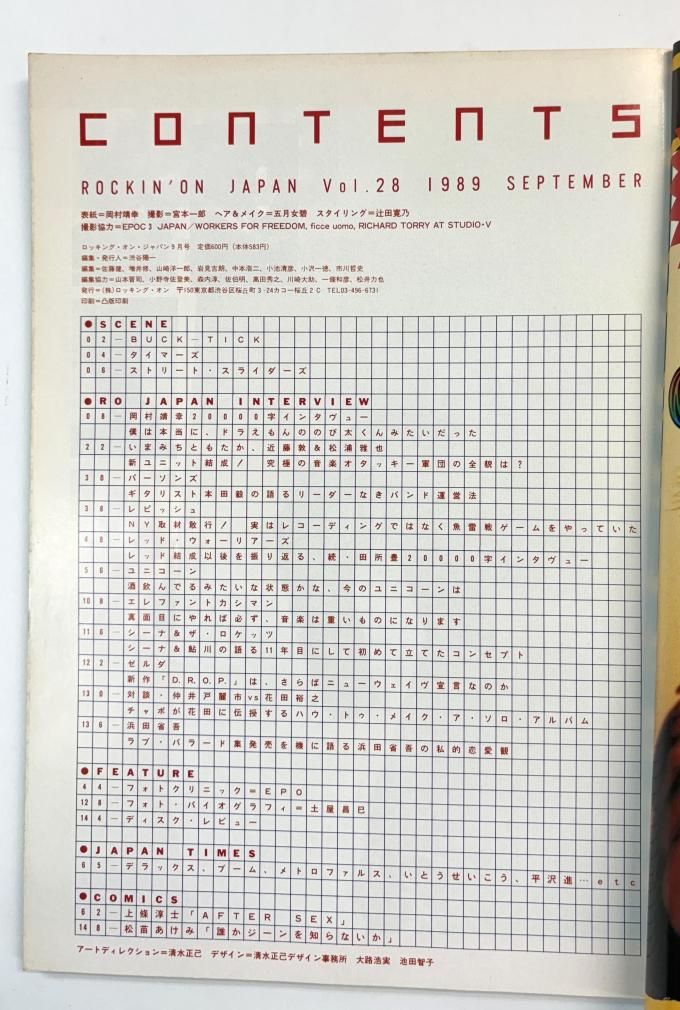 CONTENTS
ROCKIN'ON JAPAN Vol.28 1989 SEPTEMBER
表紙=岡村靖幸 撮影=宮本一郎 ヘア&メイク=五月女碧 スタイリング=辻田寛乃
撮影協力=EPOC 3 JAPAN/WORKERS FOR FREEDOM, ficce uomo, RICHARD TORRY AT STUDIO・V
ロッキング・オン・ジャパン9月号 定価600円(本体583円)
編集・発行人=渋谷陽一
編集=佐藤健、増井修、山崎洋一郎、岩見吉朗、中本浩二、小池清彦、小沢一徳、市川哲史
編集協力=山本晋司、小野寺佐登美、森内淳、佐伯明、高田秀之、川崎大助、一條和彦、松井力也
発行=(株)ロッキング・オン 〒150東京都渋谷区桜丘町3-24カコー桜丘2C TEL03-496-6731
印刷=凸版印刷
●SCENE
02―BUCK-TICK
04―タイマーズ
06―ストリート・スライダーズ
●RO JAPAN INTERVIEW
08―岡村靖幸20000字インタヴュー
僕は本当に、ドラえもんののび太くんみたいだった
22―いまみちともたか、近藤敦&松浦雅也
新ユニット結成! 究極の音楽オタッキー軍団の全貌は?
30―パーソンズ
ギタリスト本田毅の語るリーダーなきバンド運営法
38―レピッシュ
NY取材敢行! 実はレコーディングではなく魚雷戦ゲームをやっていた
48―レッド・ウォーリアーズ
レッド結成以後を振り返る、続・田所豊20000字インタヴュー
56―ユニコーン
酒飲んでるみたいな状態かな、今のユニコーンは
108―エレファントカシマシ
真面目にやれば必ず、音楽は重いものになります
116―シーナ&ザ・ロケッツ
シーナ&鮎川の語る11年目にして初めて立てたコンセプト
122―ゼルダ
新作「D.R.O.P.」は、さらばニューウェイヴ宣言なのか
130―対談・仲井戸麗市vs花田裕之
チャボが花田に伝授するハウ・トゥ・メイク・ア・ソロ・アルバム
136―浜田省吾
ラブ・バラード集発売を機に語る浜田省吾の私的恋愛観
●FEATURE
44―フォトクリニック=EPO
128―フォト・バイオグラフィ=土屋昌巳
144―ディスク・レビュー
●JAPAN TIMES
65―デラックス、ブーム、メトロファルス、いとうせいこう、平沢進…etc
●COMICS
62―上條淳士「AFTER SEX」
148―松苗あけみ「誰かジーンを知らないか」
アートディレクション=清水正己 デザイン=清水正己デザイン事務所 大路浩実 池田智子